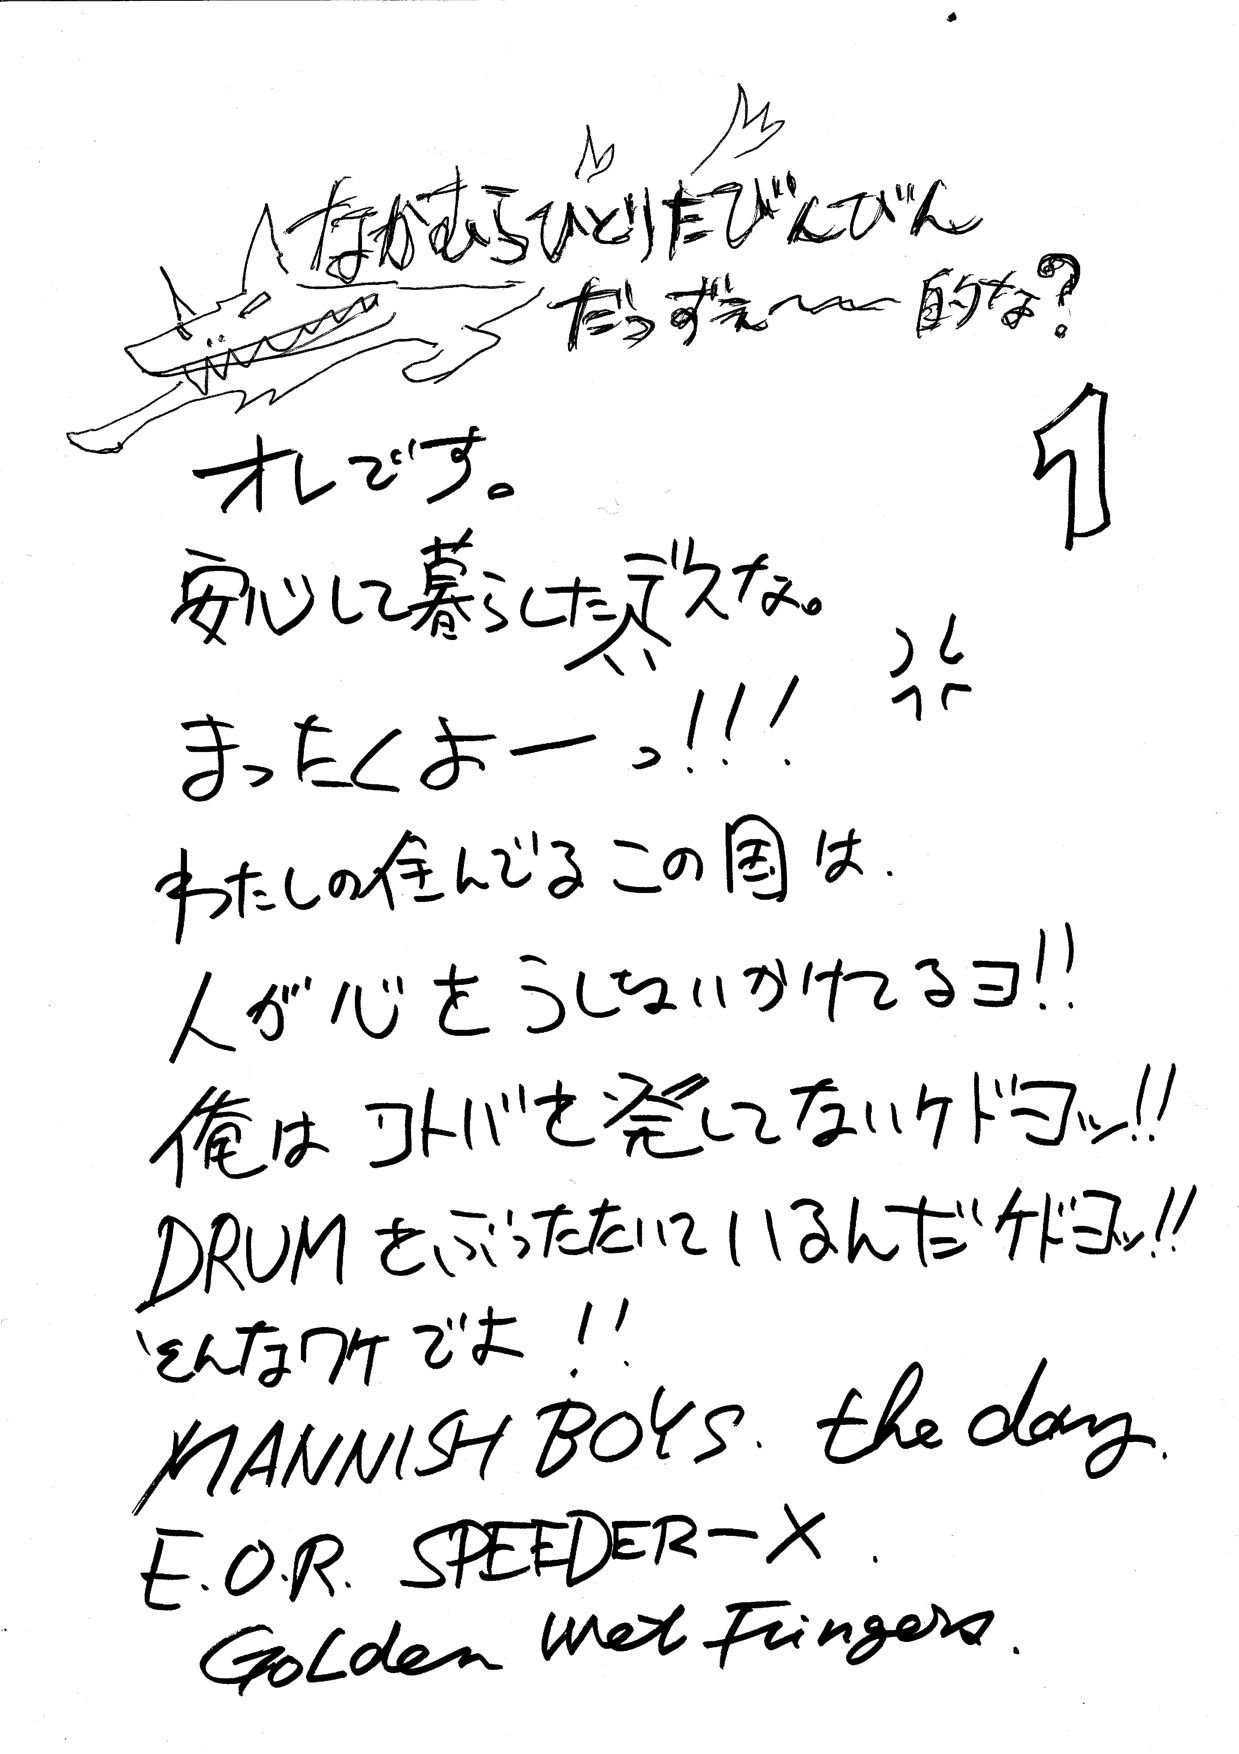 なかむらひとりたびんびん
だっずぇ〜〜 的な?
1
オレです。
安心して暮らしたいデスな。
まったくよーっ!!!
わたしの住んでるこの国は.
人が心をうしないかけてるヨ!!
俺はコトバを発してないケドヨッ!!
DRUMをぶったたいているんだケドヨッ!!
そんなワケでよ!!
MANNISH BOYS. the day.
E.O.R. SPEEDER-X.
GoLden Wet Fingers.